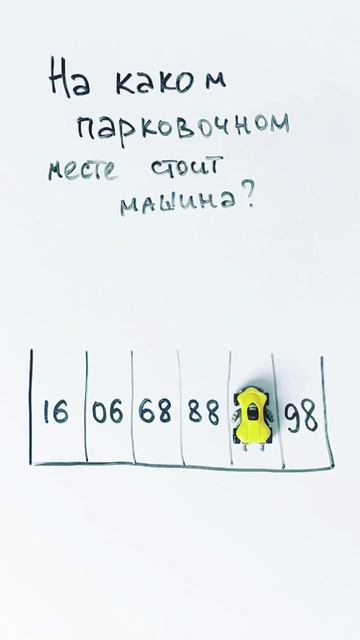 На каком
парковочном
месте стоит
машина?
16 06 68 88 98